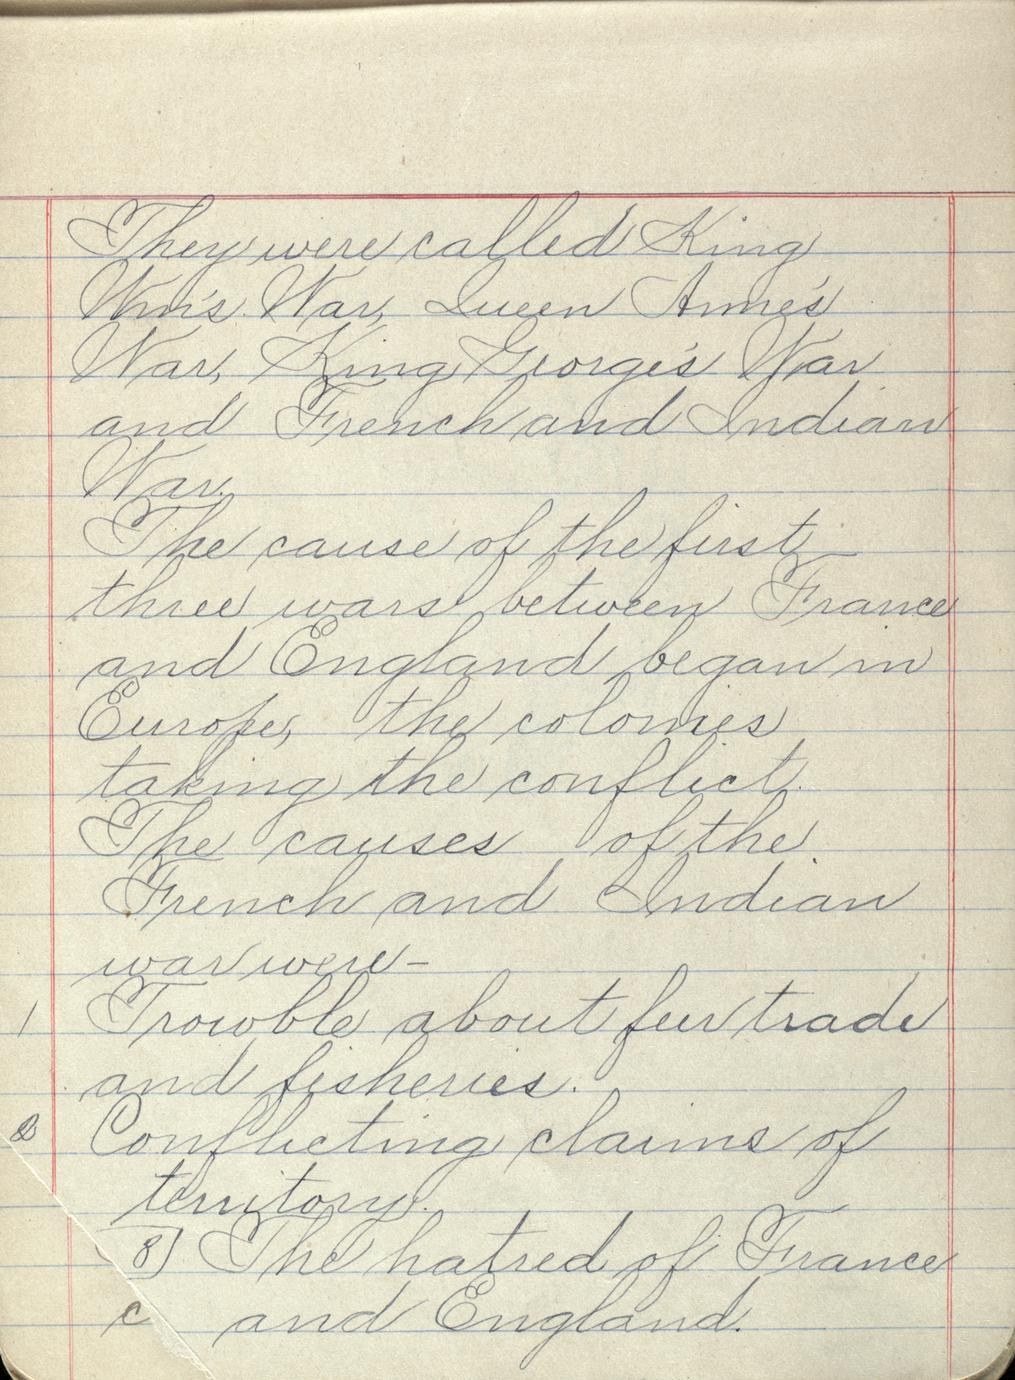 They were called King
Wm's. War, Queen Anne's
War, King George's War
and French and Indian
War.
The cause of the first
three wars between France
and England began in
Europe, the colonies
taking the conflict.
The causes of the
French and Indian
war were—
1 Trowble about fur trade
and fisheries.
2 Conflicting claims of
territory.
8) The hatred of France
c and England.